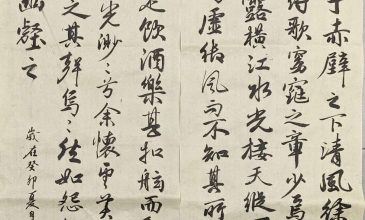 于赤壁之下清風徐
詩歌窈窕之章少焉
露橫江水光接天縱
虛御風而不知其所
是飲酒樂甚扣舷而
光渺〻兮余懷望美
之其聲嗚〻然如怨
幽壑之
歲在癸卯夏月